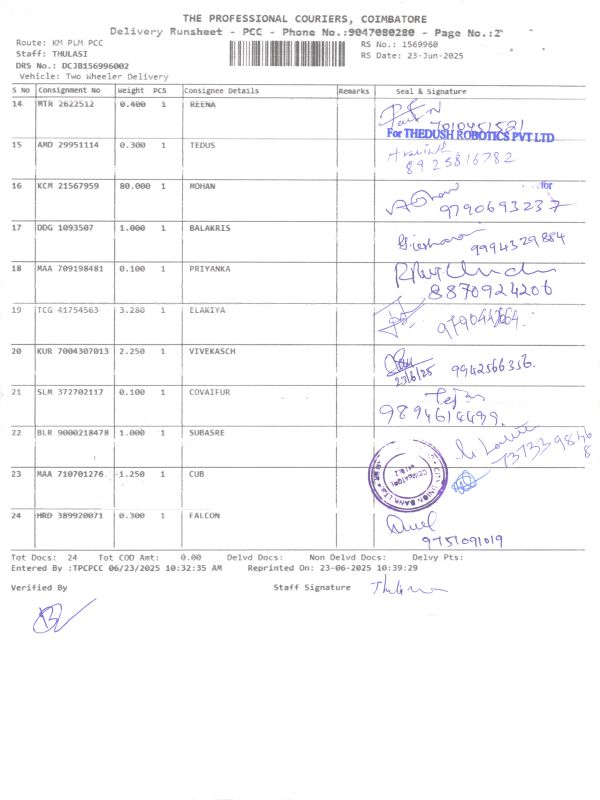 THE PROFESSIONAL COURIERS, COIMBATORE
Delivery Runsheet - PCC - Phone No.:9047080280 - Page No.:2
Route: KM PLM PCC
RS No.: 1569960
Staff: THULASI
RS Date: 23-Jun-2025
DRS No.: DCJB156996002
Vehicle: Two Wheeler Delivery
S No Consignment No Weight PCS Consignee Details Remarks Seal & Signature
14 MTR 2622512 0.400 1 REENA
7010451521
For THEDUSH ROBOTICS PVT LTD
15 AMD 29951114 0.300 1 TEDUS
8925816782
16 KCM 21567959 80.000 1 MOHAN
for
9790693237
17 DDG 1093507 1.000 1 BALAKRIS
9994329884
18 MAA 709198481 0.100 1 PRIYANKA
8870924206
19 TCG 41754563 3.280 1 ELAKIYA
20 KUR 7004307013 2.250 1 VIVEKASCH
23/6/25 9942566356.
21 SLM 372702117 0.100 1 COVAIFUR
9894614499.
22 BLR 9000218478 1.000 1 SUBASRE
23 MAA 710701276 1.250 1 CUB
CITY UNION BANK LTD
COIMBATORE
24 HRD 389920071 0.300 1 FALCON
9751091019
Tot Docs: 24 Tot COD Amt: 0.00 Delvd Docs: Non Delvd Docs: Delvy Pts:
Entered By :TPCPCC 06/23/2025 10:32:35 AM Reprinted On: 23-06-2025 10:39:29
Verified By Staff Signature